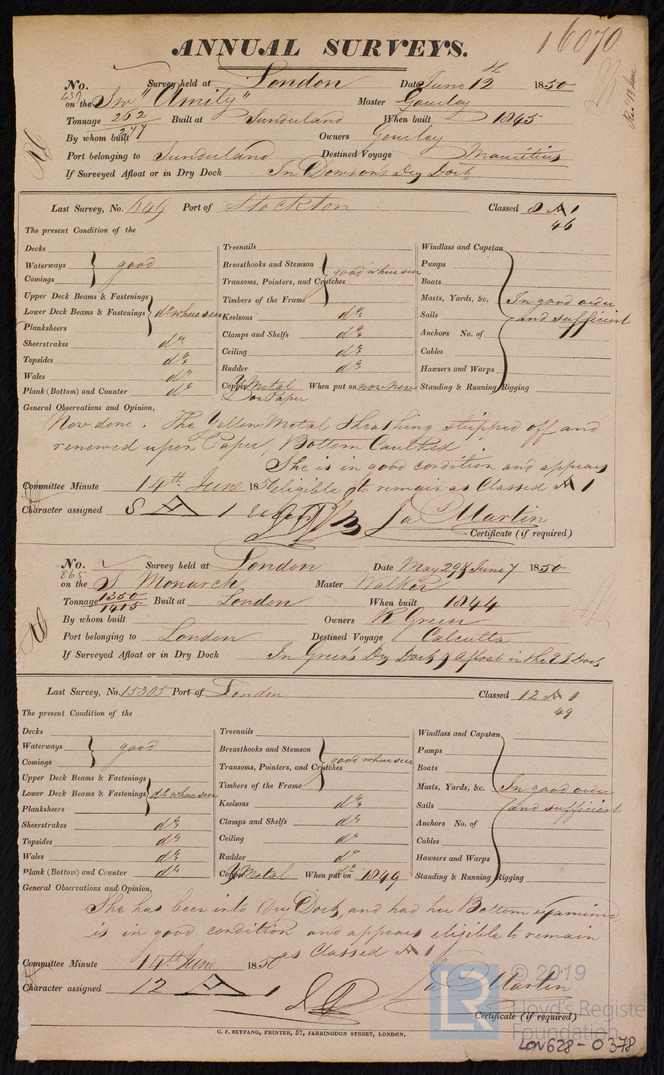 16070
ANNUAL SURVEYS.
No. Survey held at London Date June 12th 1850
on the Sw "Amity" Master Gourley
Tonnage 262 Built at Sunderland When built 1845
277
By whom built Owners Gourley
Port belonging to Sunderland Destined Voyage Mauritius
If Surveyed Afloat or in Dry Dock In Dowson's Dry Dock
Last Survey, No. 649 Port of Stockton Classed 8 A 1
46
The present Condition of the
Decks Treenails Windlass and Capstan
Waterways good Breasthooks and Stemson good where seen Pumps
Comings Transoms, Pointers, and Crutches Boats
Upper Deck Beams & Fastenings Timbers of the Frame Masts, Yards, &c. In good order
Lower Deck Beams & Fastenings do where seen Keelsons do Sails and sufficient
Planksheers Clamps and Shelfs do Anchors No. of
Sheerstrakes do Ceiling do Cables
Topsides do Rudder do Hawsers and Warps
Wales do Copper Y Metal When put on now new Standing & Running Rigging
Plank (Bottom) and Counter do on Paper
General Observations and Opinion,
Now done. The Yellow Metal Sheathing stripped off and
renewed upon Paper, Bottom Caulked.
She is in good condition and appears
eligible to remain as Classed A 1
Committee Minute 14th June 1850
Character assigned 8 A 1 Jas Martin
Certificate (if required)
No. Survey held at London Date May 29 & June 7 1850
865
on the S Monarch Master Walker
Tonnage 1350 Built at London When built 1844
1415
By whom built Owners R Green
Port belonging to London Destined Voyage Calcutta
If Surveyed Afloat or in Dry Dock In Green's Dry Dock & Afloat in the E I Dock
Last Survey, No. 15305 Port of London Classed 12 A 1
49
The present Condition of the
Decks Treenails Windlass and Capstan
Waterways good Breasthooks and Stemson good where seen Pumps
Comings Transoms, Pointers, and Crutches Boats
Upper Deck Beams & Fastenings Timbers of the Frame Masts, Yards, &c. In good order
Lower Deck Beams & Fastenings do where seen Keelsons do Sails and sufficient
Planksheers Clamps and Shelfs do Anchors No. of
Sheerstrakes do Ceiling do Cables
Topsides do Rudder do Hawsers and Warps
Wales do Copper Y Metal When put on 1849 Standing & Running Rigging
Plank (Bottom) and Counter do
General Observations and Opinion,
She has been into Dry Dock, and had her Bottom examined
is in good condition and appears eligible to remain
as Classed A 1
Committee Minute 14th June 1850
Character assigned 12 A 1 Jas Martin
Certificate (if required)
C. F. SEYFANG, PRINTER, 57, FARRINGDON STREET, LONDON.
LR © 2019
Lloyd's Register
Foundation
LON628-0378